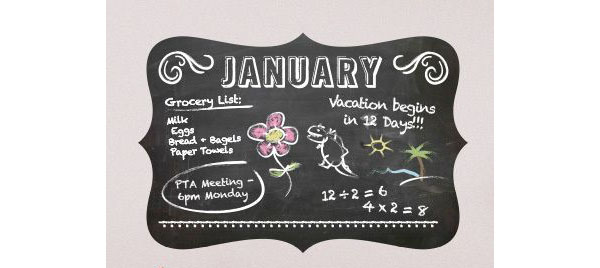 JANUARY
Grocery List:
Milk
Eggs
Bread + Bagels
Paper Towels
Vacation begins
in 12 Days!!!
PTA Meeting -
6pm Monday
12 ÷ 2 = 6
4 x 2 = 8